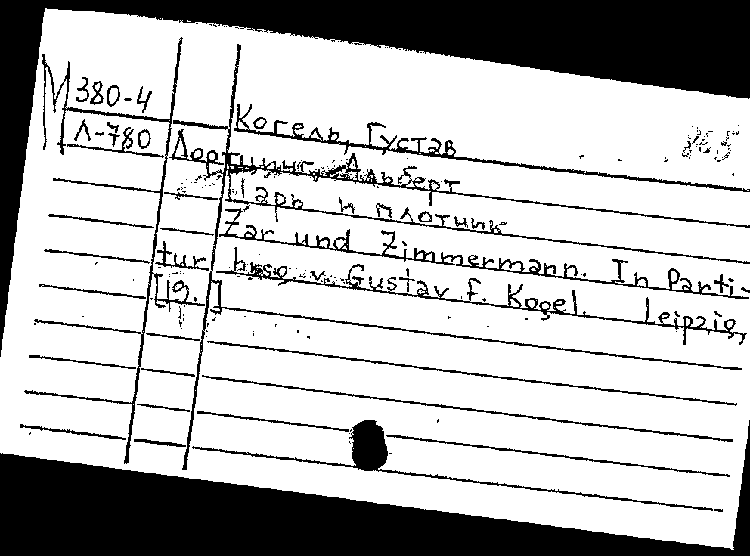 М 380-4
Л-780
Когель, Густав
Лорцинг, Альберт
Царь и плотник
Zar und Zimmermann. In Parti-
tur hrsg v. Gustav F. Kogel. Leipzig,
[19. ]